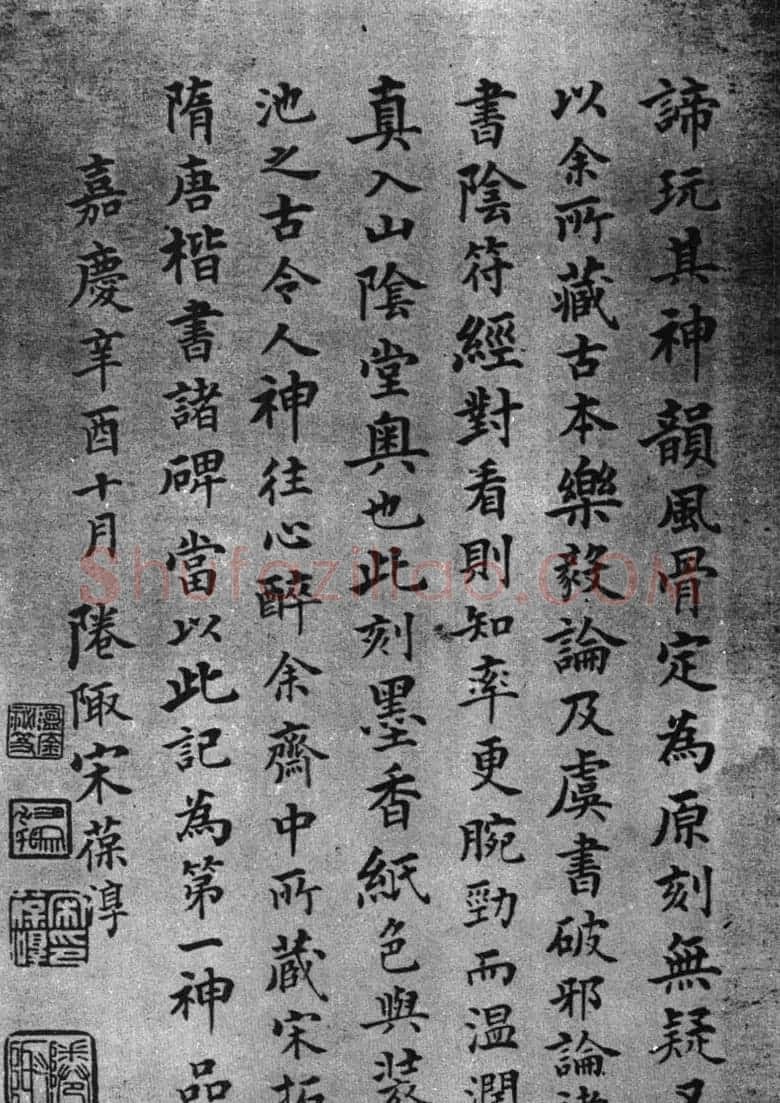 諦玩其神韻風骨定為原刻無疑又
以余所藏古本樂毅論及虞書破邪論褚
書陰符經對看則知率更腕勁而温潤
真入山陰堂奥也此刻墨香紙色與裝
池之古令人神往心醉余齋中所蔵宋拓
隋唐楷書諸碑當以此記為第一神品
嘉慶辛酉十月隆陬宋葆淳
Shufaziliao.COM